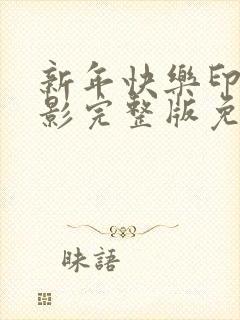 新年快樂印
影完整版免
昧語